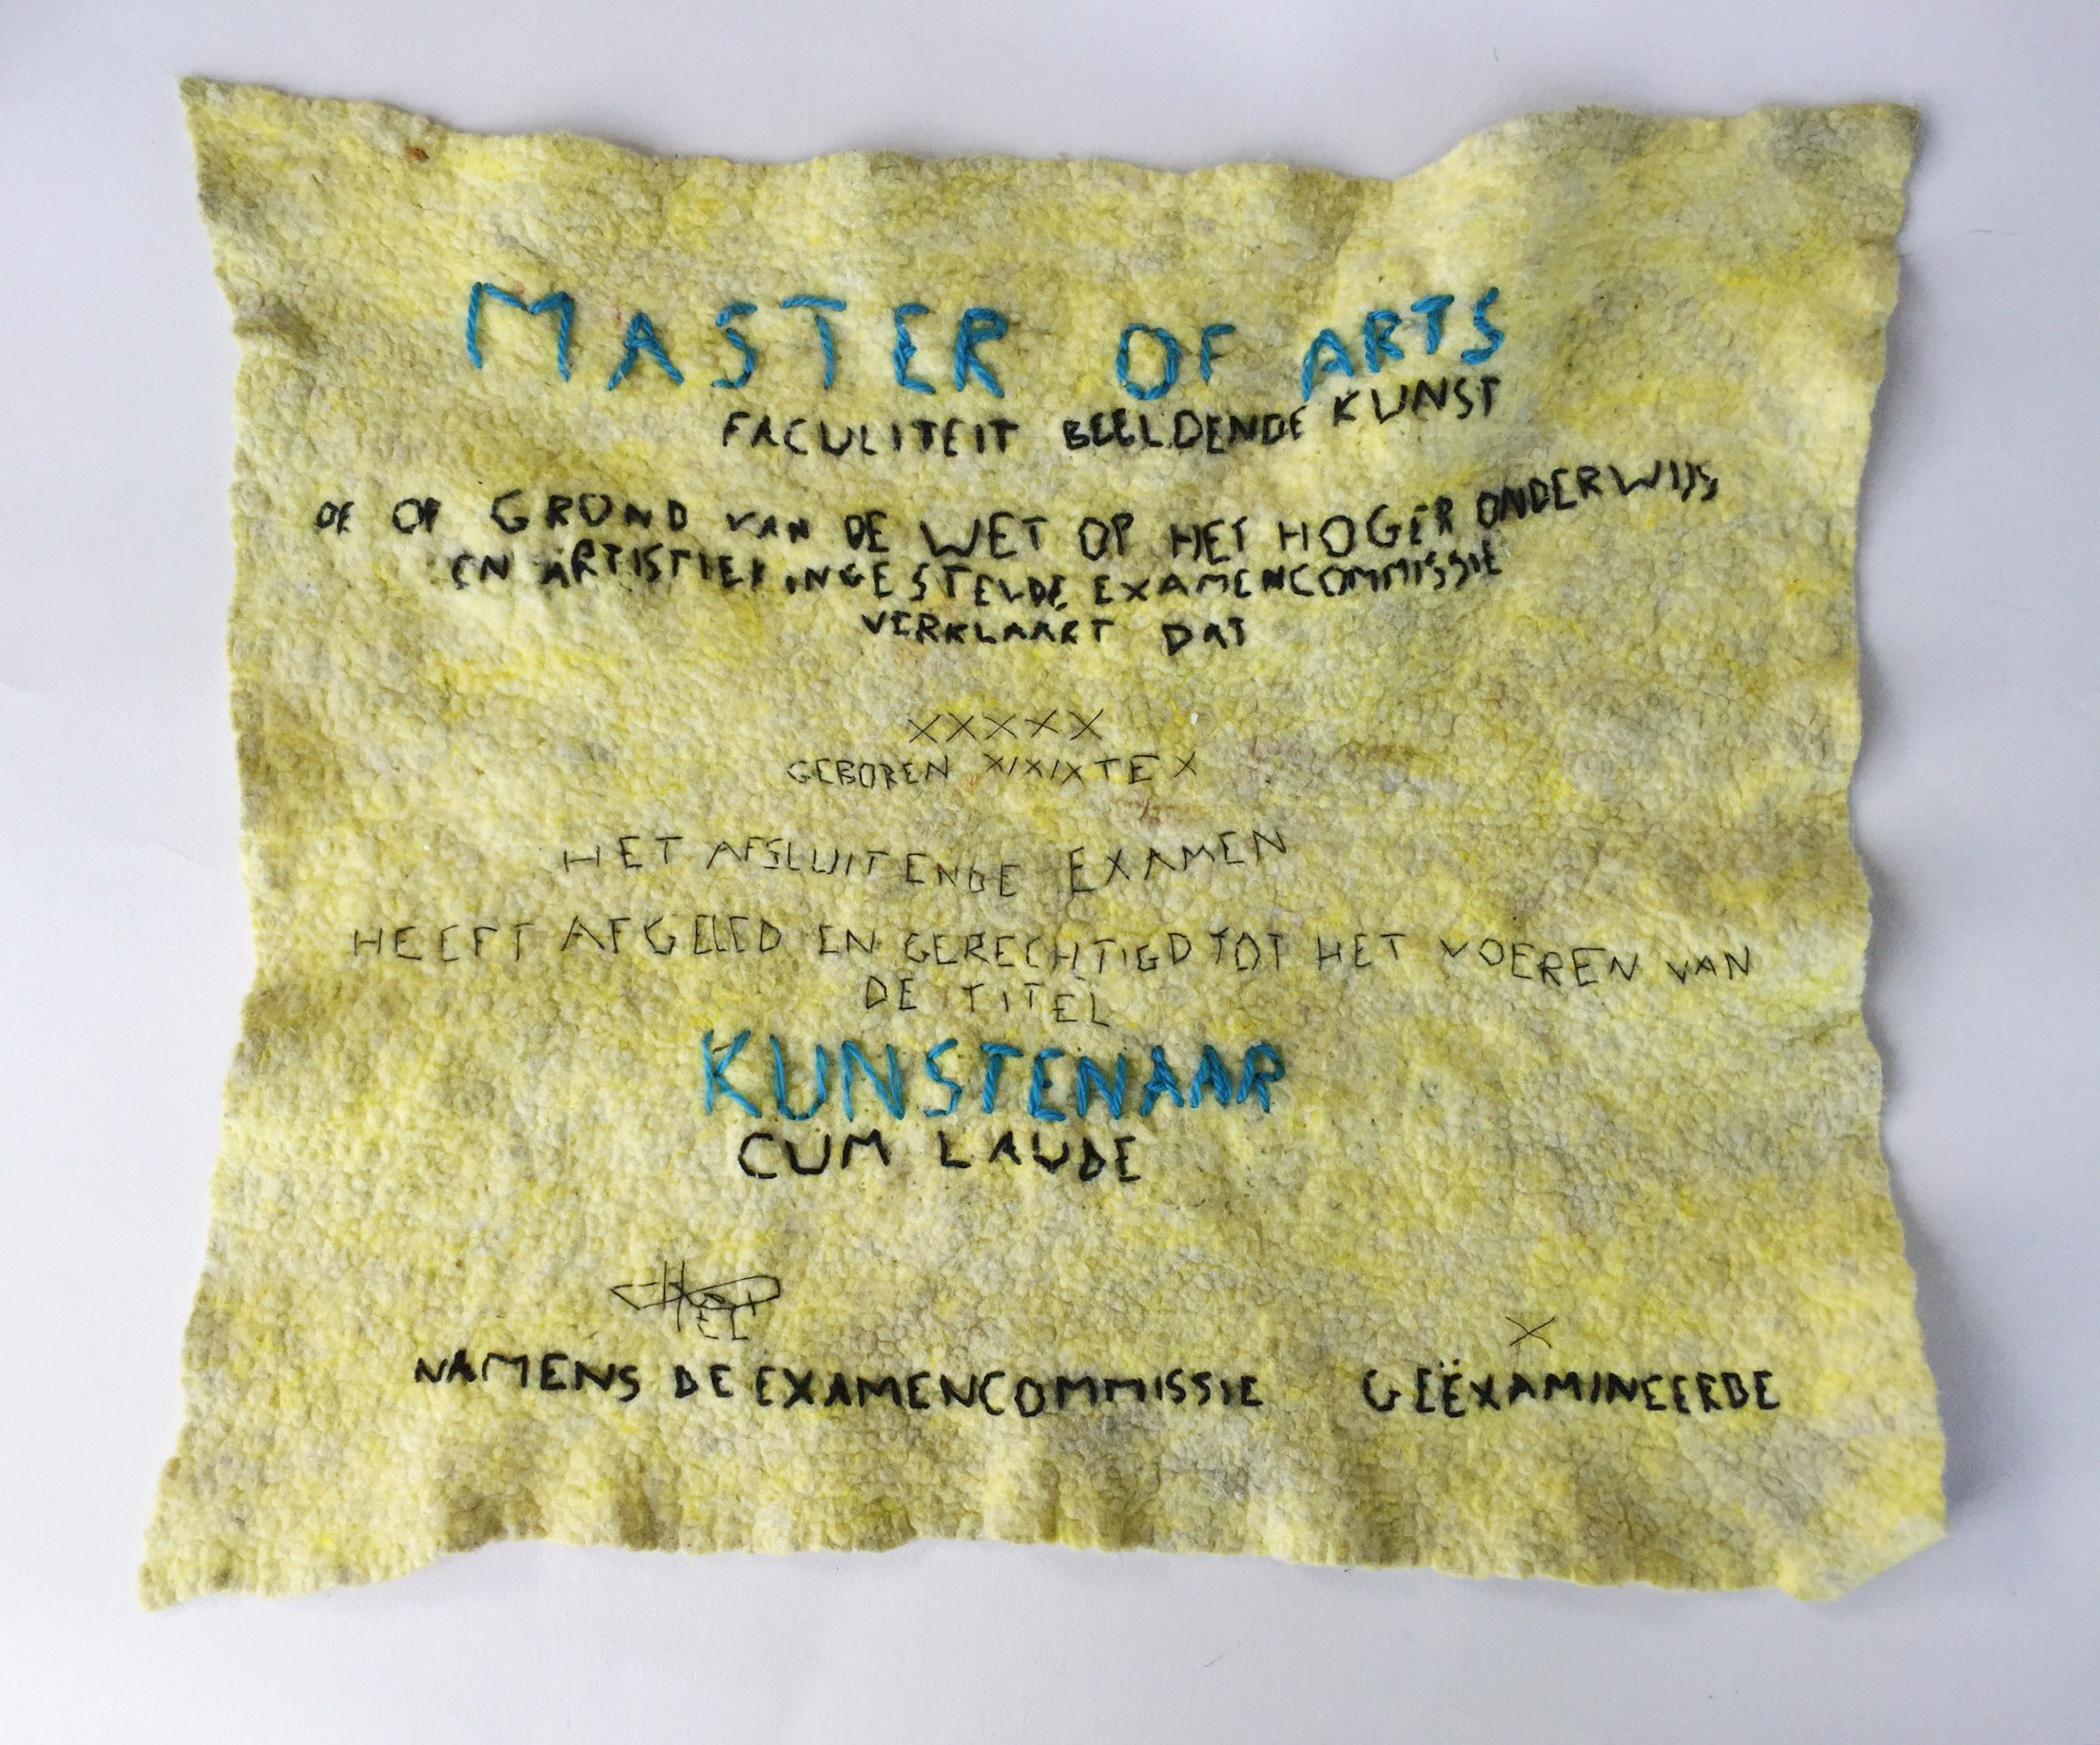 MASTER OF ARTS
FACULITEIT BEELDENDE KUNST
DE OP GROND VAN DE WET OP HET HOGER ONDERWIJS
EN ARTISTIEK INGESTELDE EXAMENCOMMISSIE
VERKLAART DAT
XXXXX
GEBOREN X/X/X TE X
HET AFSLUITENDE EXAMEN
HEEFT AFGELED EN GERECHTIGD TOT HET VOEREN VAN
DE TITEL
KUNSTENAAR
CUM LAUDE
X
NAMENS DE EXAMENCOMMISSIE GEËXAMINEERDE